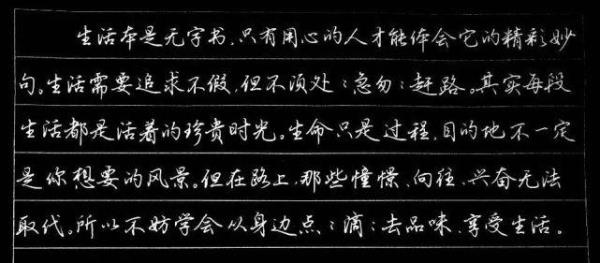 生活本是无字书,只有用心的人才能体会它的精彩妙
句。生活需要追求不假,但不须处〻急匆〻赶路。其实每段
生活都是活着的珍贵时光。生命只是过程,目的地不一定
是你想要的风景。但在路上,那些憧憬、向往、兴奋无法
取代。所以不妨学会从身边点〻滴〻去品味、享受生活。